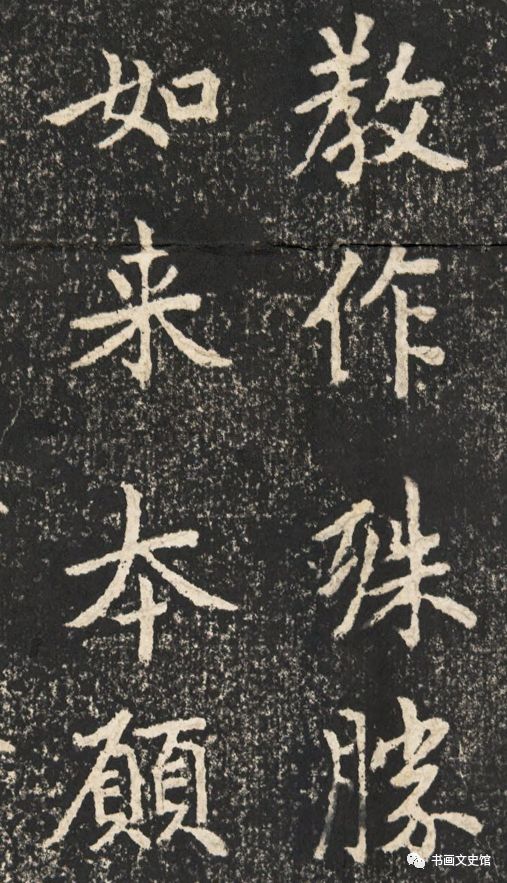 教作殊勝
如来本願
书画文史馆